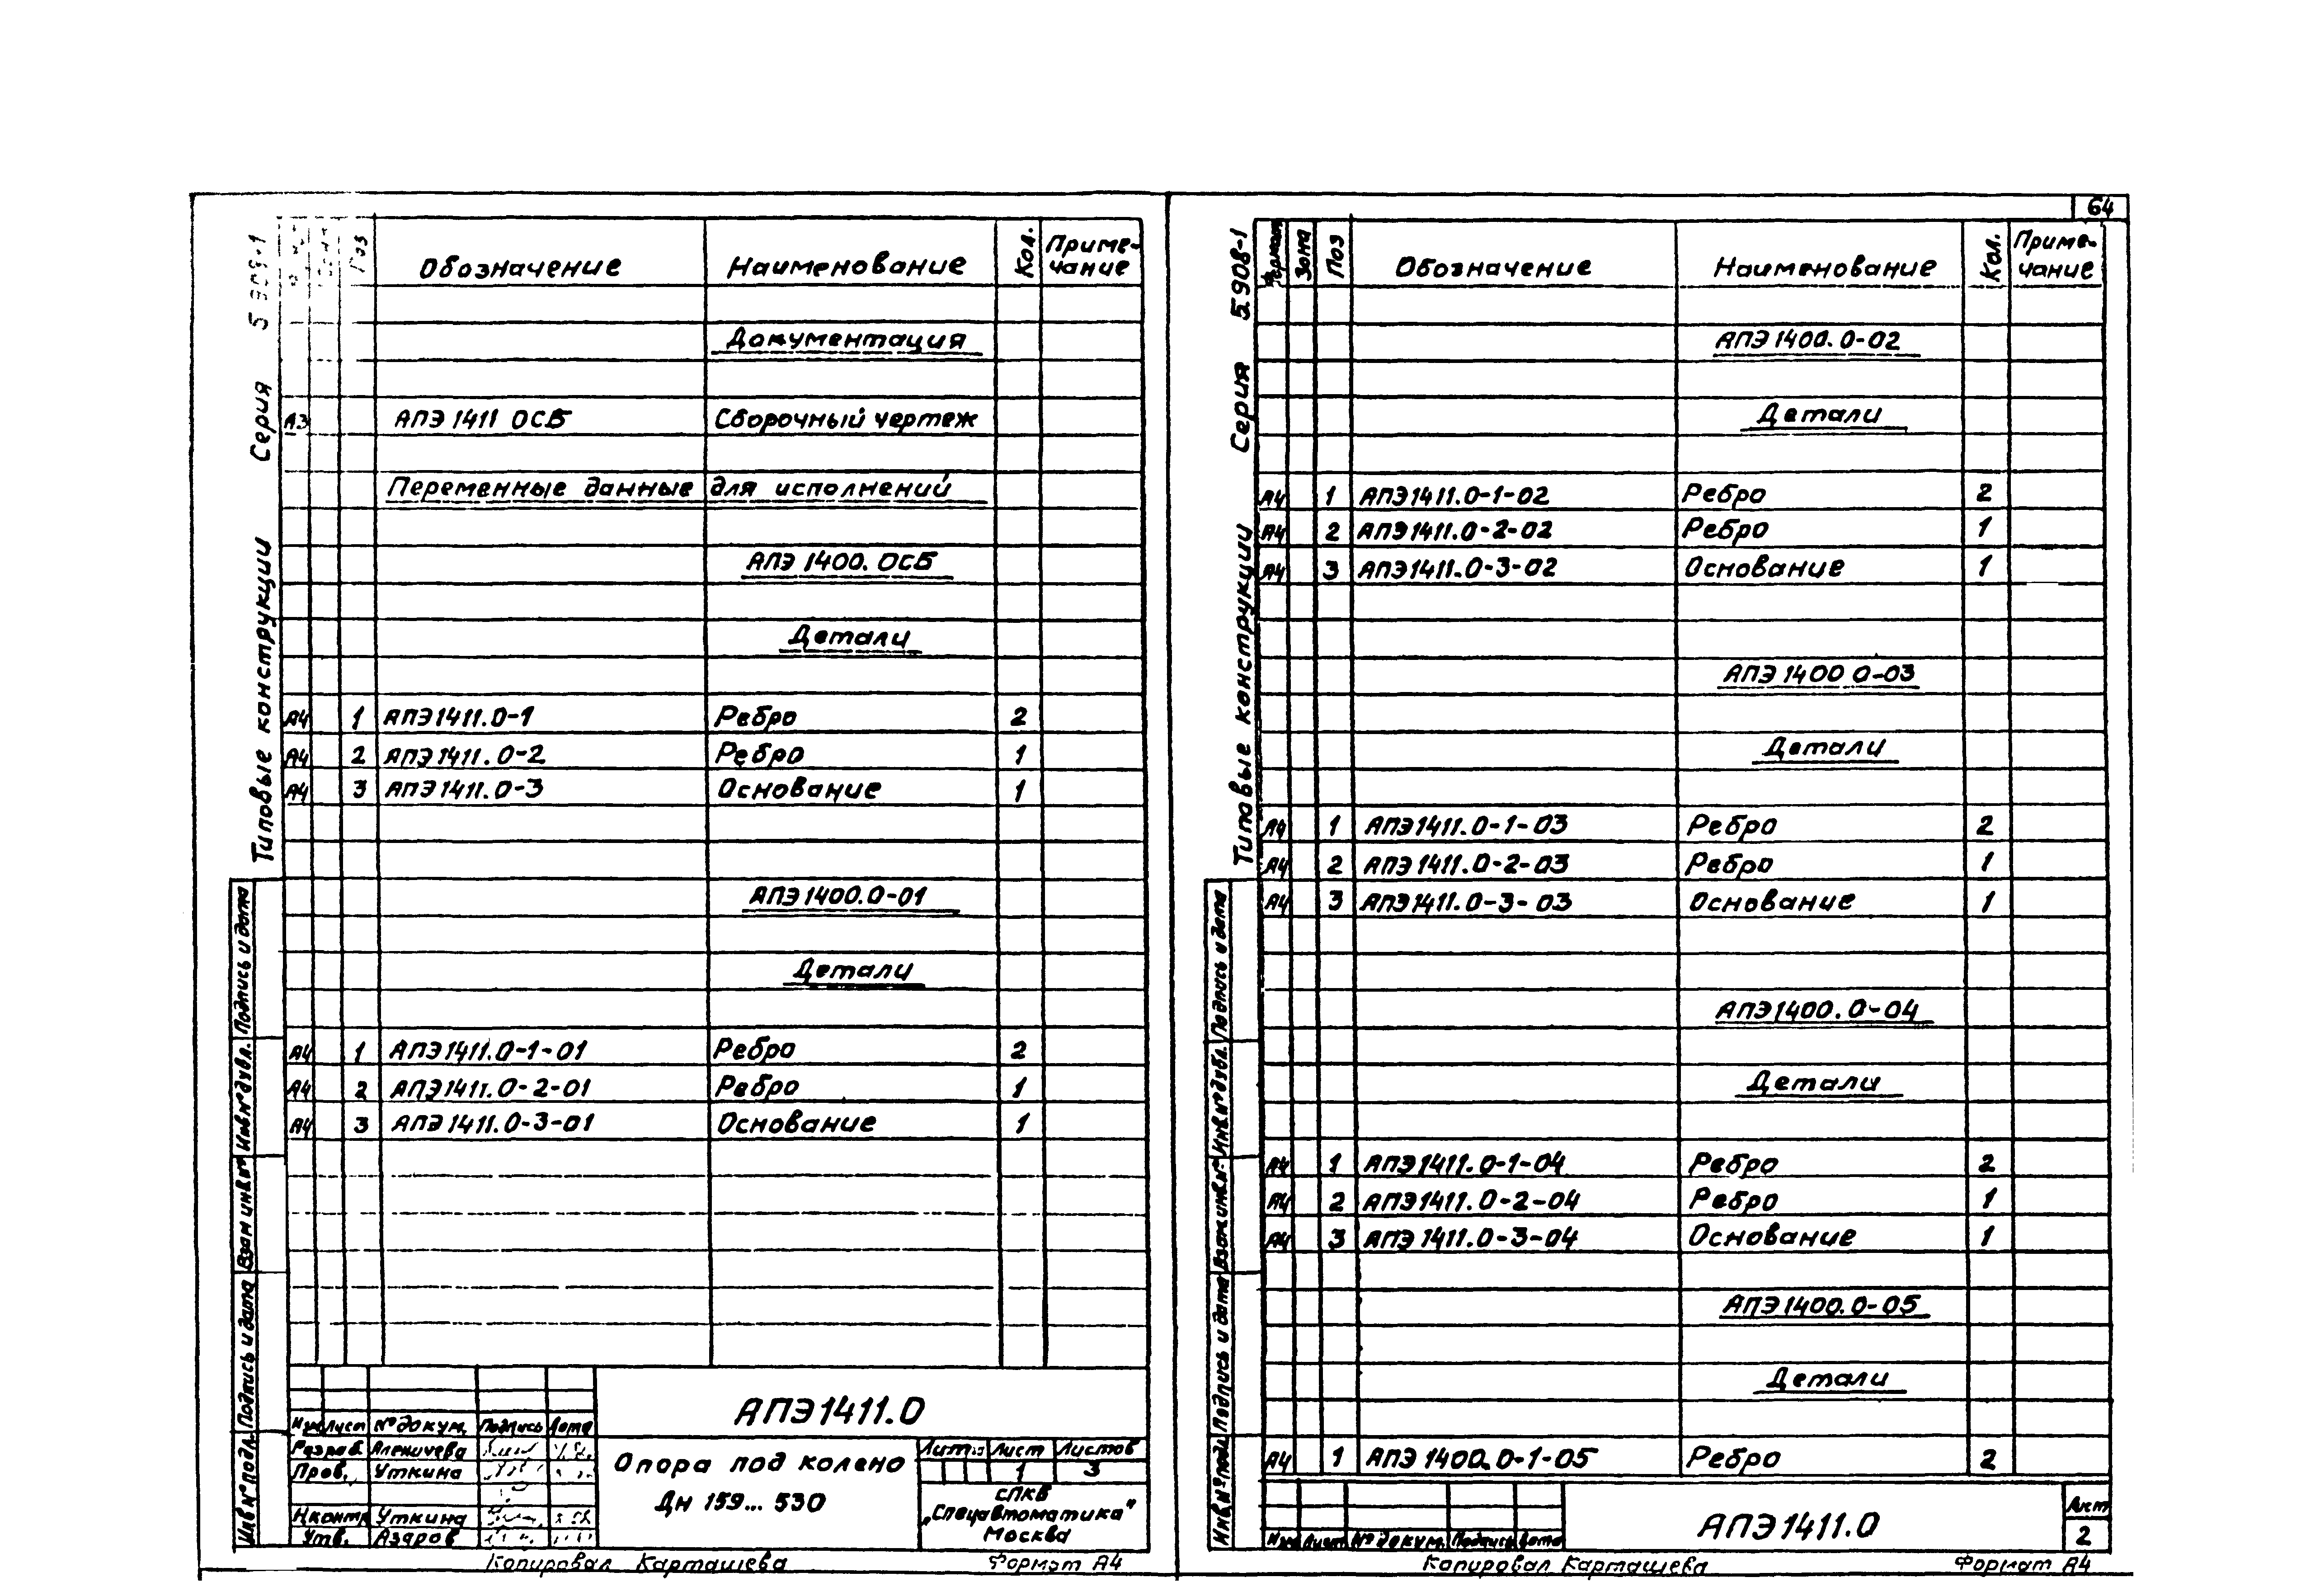 64
Типовые конструкции Серия 5.909-1
Поз
Обозначение Наименование Кол. Приме-
чание
Документация
А3 АПЭ 1411 ОСБ Сборочный чертеж
Переменные данные для исполнений
АПЭ 1400. ОСБ
Детали
А4 1 АПЭ1411.0-1 Ребро 2
А4 2 АПЭ1411.0-2 Ребро 1
А4 3 АПЭ1411.0-3 Основание 1
АПЭ1400.0-01
Детали
А4 1 АПЭ1411.0-1-01 Ребро 2
А4 2 АПЭ1411.0-2-01 Ребро 1
А4 3 АПЭ1411.0-3-01 Основание 1
Инв № подл. Подпись и дата Взам инв № Инв № дубл. Подпись и дата
АПЭ1411.0
Изм Лист № докум. Подпись Дата
Разраб. Аленичева
Пров. Уткина
Н контр Уткина
Утв. Азаров
Опора под колено
Дн 159... 530
Лит. Лист Листов
1 3
СПКБ
„Спецавтоматика"
Москва
Копировал Карташева Формат А4
Типовые конструкции Серия 5.908-1
Формат Зона Поз Обозначение Наименование Кол. Приме-
чание
АПЭ1400.0-02
Детали
А4 1 АПЭ1411.0-1-02 Ребро 2
А4 2 АПЭ1411.0-2-02 Ребро 1
А4 3 АПЭ1411.0-3-02 Основание 1
АПЭ1400 0-03
Детали
А4 1 АПЭ1411.0-1-03 Ребро 2
А4 2 АПЭ1411.0-2-03 Ребро 1
А4 3 АПЭ1411.0-3-03 Основание 1
АПЭ1400.0-04
Детали
А4 1 АПЭ1411.0-1-04 Ребро 2
А4 2 АПЭ1411.0-2-04 Ребро 1
А4 3 АПЭ1411.0-3-04 Основание 1
АПЭ1400.0-05
Детали
А4 1 АПЭ1400.0-1-05 Ребро 2
Инв № подл Подпись и дата Взам инв № Инв № дубл. Подпись и дата
Изм Лист № докум. Подпись Дата
АПЭ1411.0
Лист
2
Копировал Карташева Формат А4